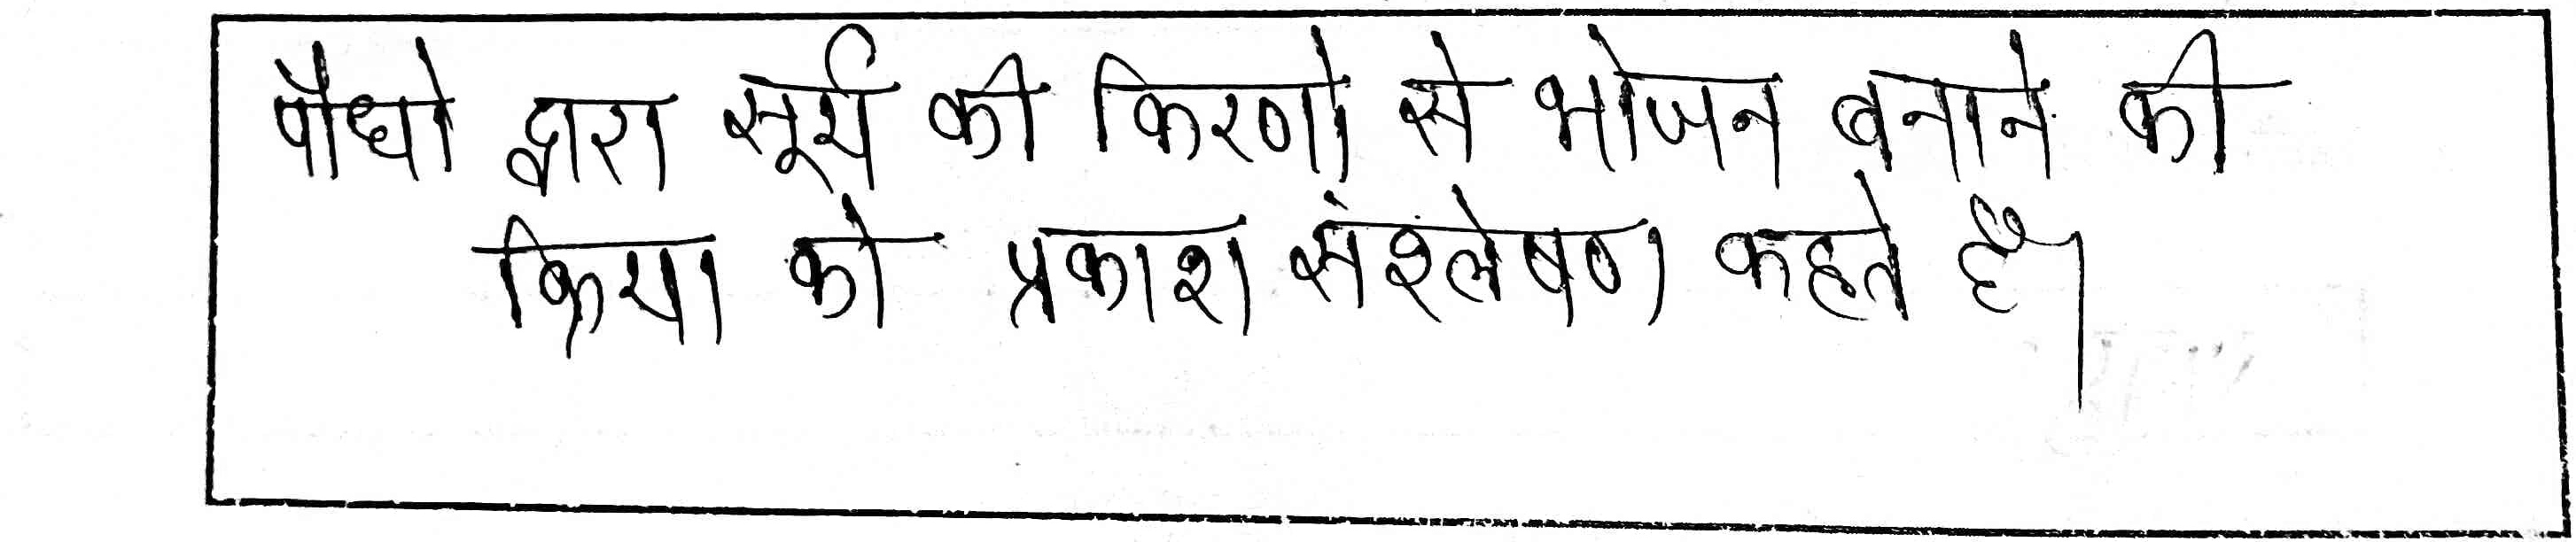 पौधो द्वारा सूर्य की किरणो से भोजन बनाने की
क्रिया को प्रकाश संश्लेषण कहते हैं।